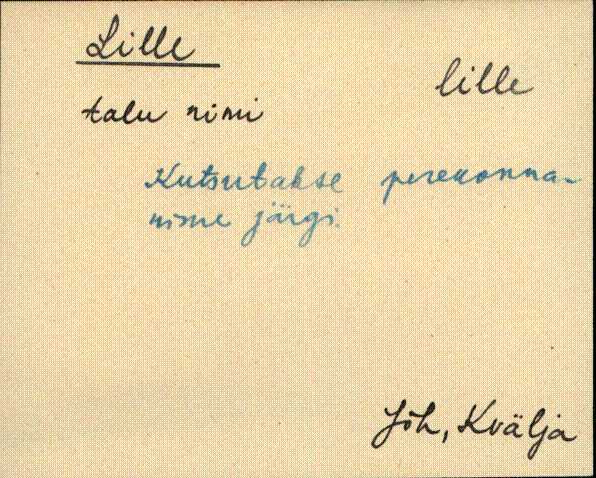 Lille
lille
talu nimi
Kutsutakse perekonna-
nime järgi.
Jõh, Kvälja